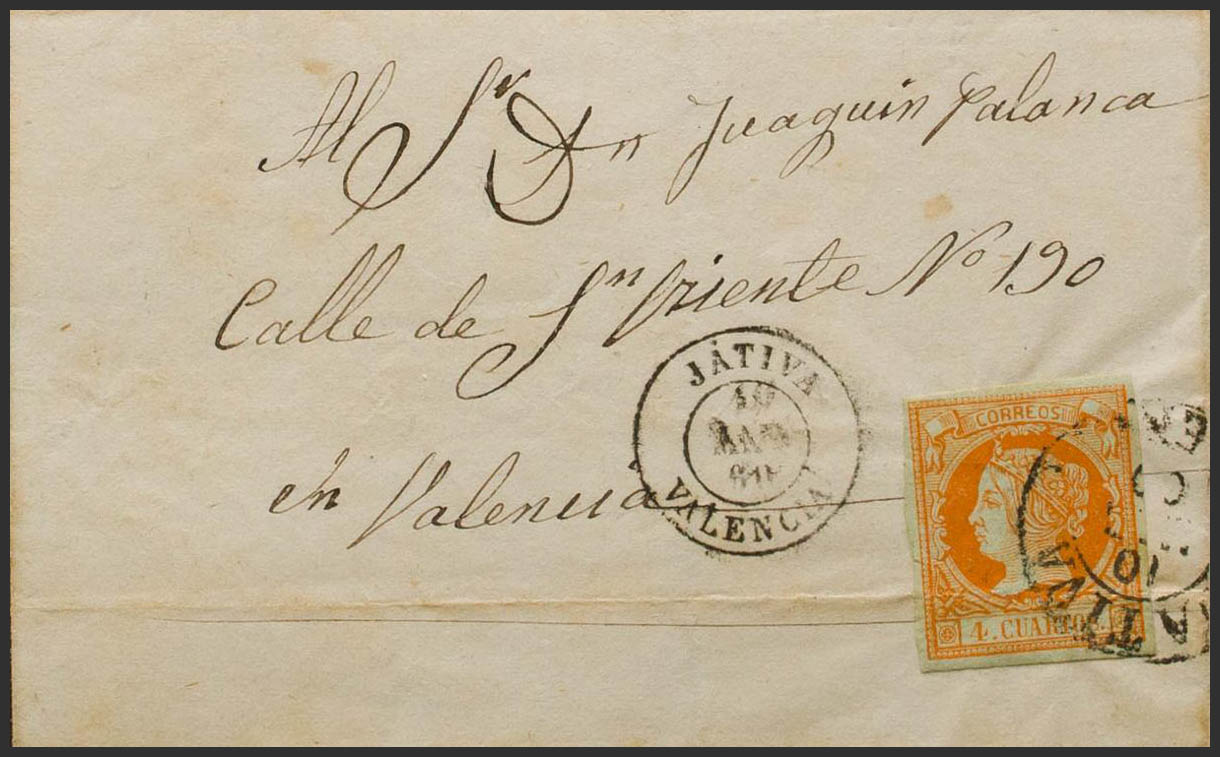 Al Sr Dn Juaquin Palanca
Calle de Sn Visiente No 190
en Valencia
JÁTIVA
10
MAR
60
VALENCIA
CORREOS
4. CUARTOS.